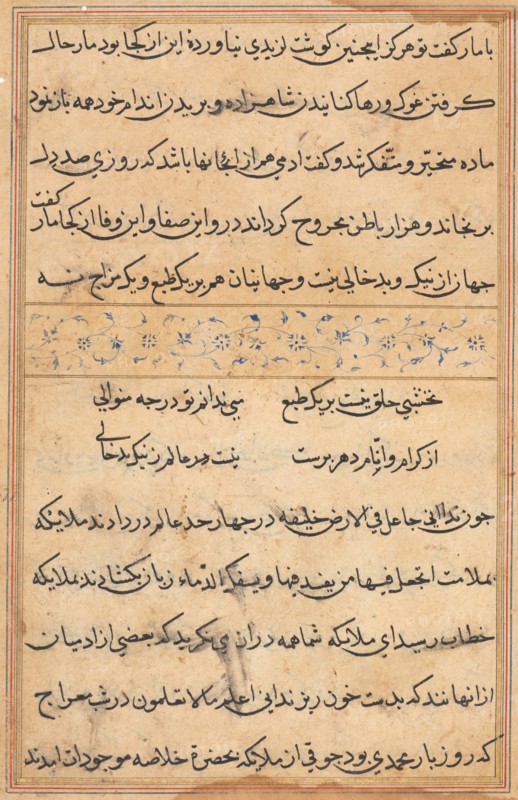 با مار گفت تو هرگز اینچنین گوشت لزیدی نیاورده این از کجا بود مار حال
گرفتن غوک و رها کنانیدن شاهزاده و بریدن اندام خود همه باز نمود
ماده متحیّر و متفکر شد و گفت ادمی هم از انجانها باشد که روزی صد دل
برنجاند و هزار باطن مجروح کرداند درو این صفا و این وفا از کجا مار گفت
جهان از نیک و بد خالی نیست و جهانیان هم بر یک طبع و یک مزاج نه
نخشبی خلق نیست بر یک طبع می ندانم تو در چه منوالی
از کرام و لئام دهر پرست نیست عالم ز نیک بد خالی
چون ندا انی جاعل فی الارض خلیفه در چهار حد عالم در دادند ملایکه
بملامت اتجعل فیها من یفسد فیها ویسفک الدّماء زبان بکشادند بملایکه
خطاب رسید ای ملایکه شما همه دران می نکرید که بعضی از ادمیان
از انها نند که بدست خون ریزند انی اعلم مالا تعلمون در شب معراج
که روز بار محمدی بود جوقی از ملایکه بحضرة خلاصه موجودات امدند